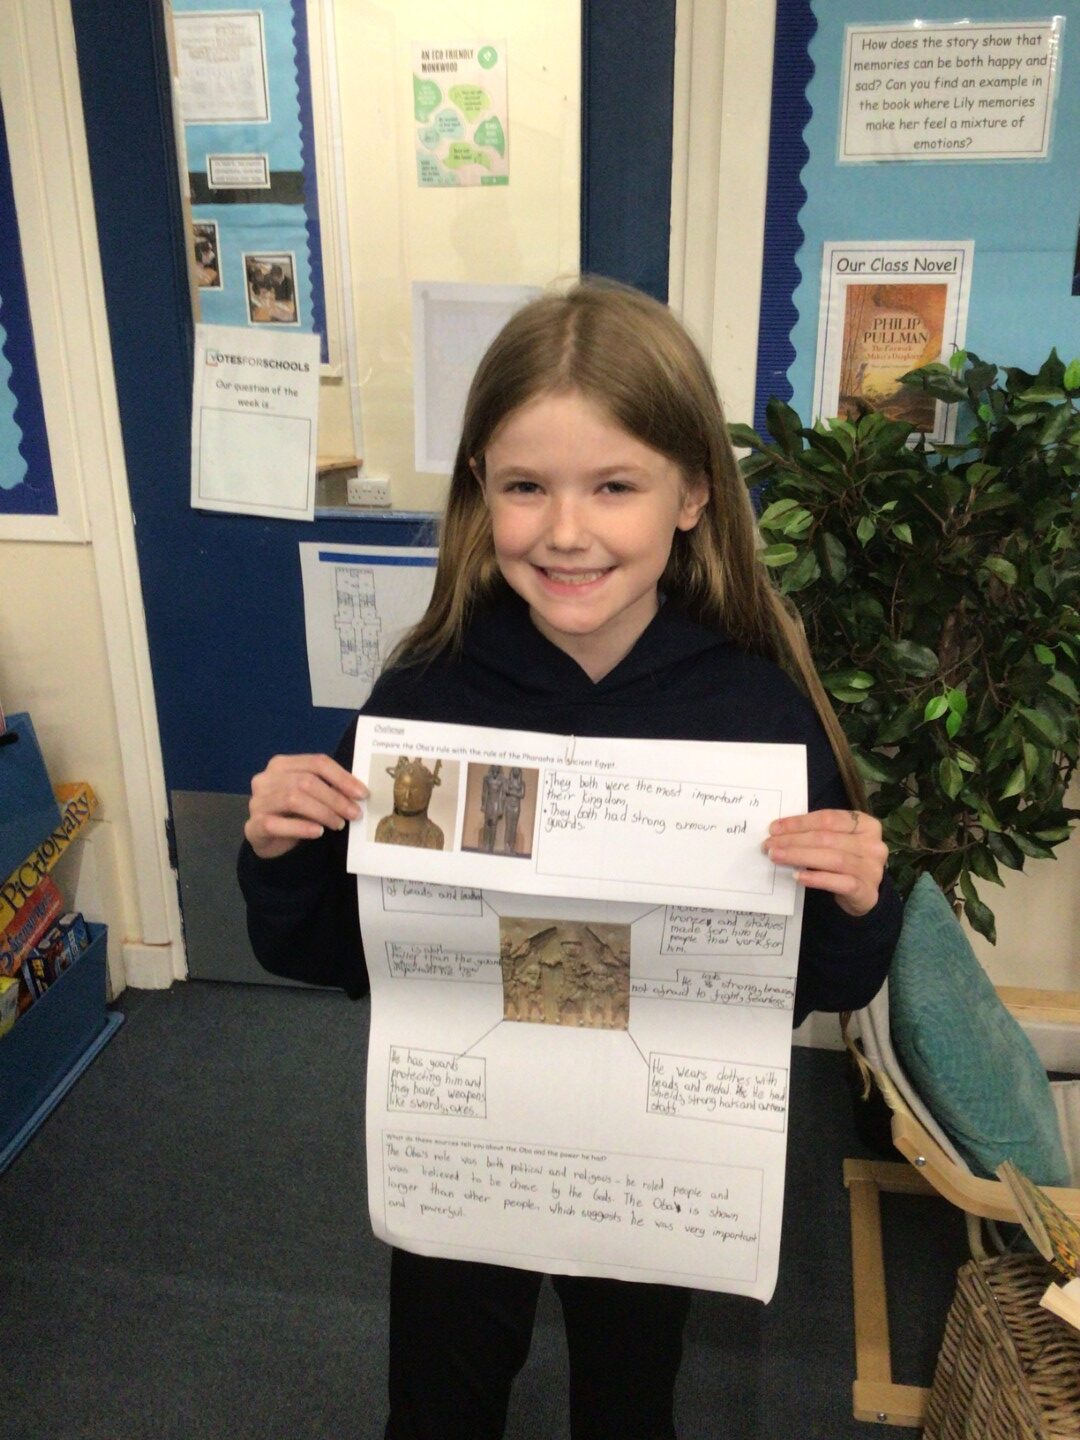 AN ECO FRIENDLY
MONKWOOD
How does the story show that
memories can be both happy and
sad? Can you find an example in
the book where Lily memories
make her feel a mixture of
emotions?
Our Class Novel
PHILIP
PULLMAN
The Firework
Maker's Daughter
VOTESFORSCHOOLS
Our question of the
week is...
PICTIONARY
Challenge
Compare the Oba's rule with the rule of the Pharaohs in Ancient Egypt.
•They both were the most important in
their kingdom.
•They both had strong armour and
guards.
of beads and
bronze and statues
made for him by
people that work for
him.
He is
taller than the
He is strong,
not afraid to fight, fearless
He has guards
protecting him and
they have weapons
like swords, axes.
He wears clothes with
beads and metal. He had
shields, strong hats and armour
staff
What do these sources tell you about the Oba and the power he had?
The Oba's role was both political and religious - he ruled people and
was believed to be chose by the Gods. The Oba is shown
larger than other people, which suggests he was very important
and powerful.